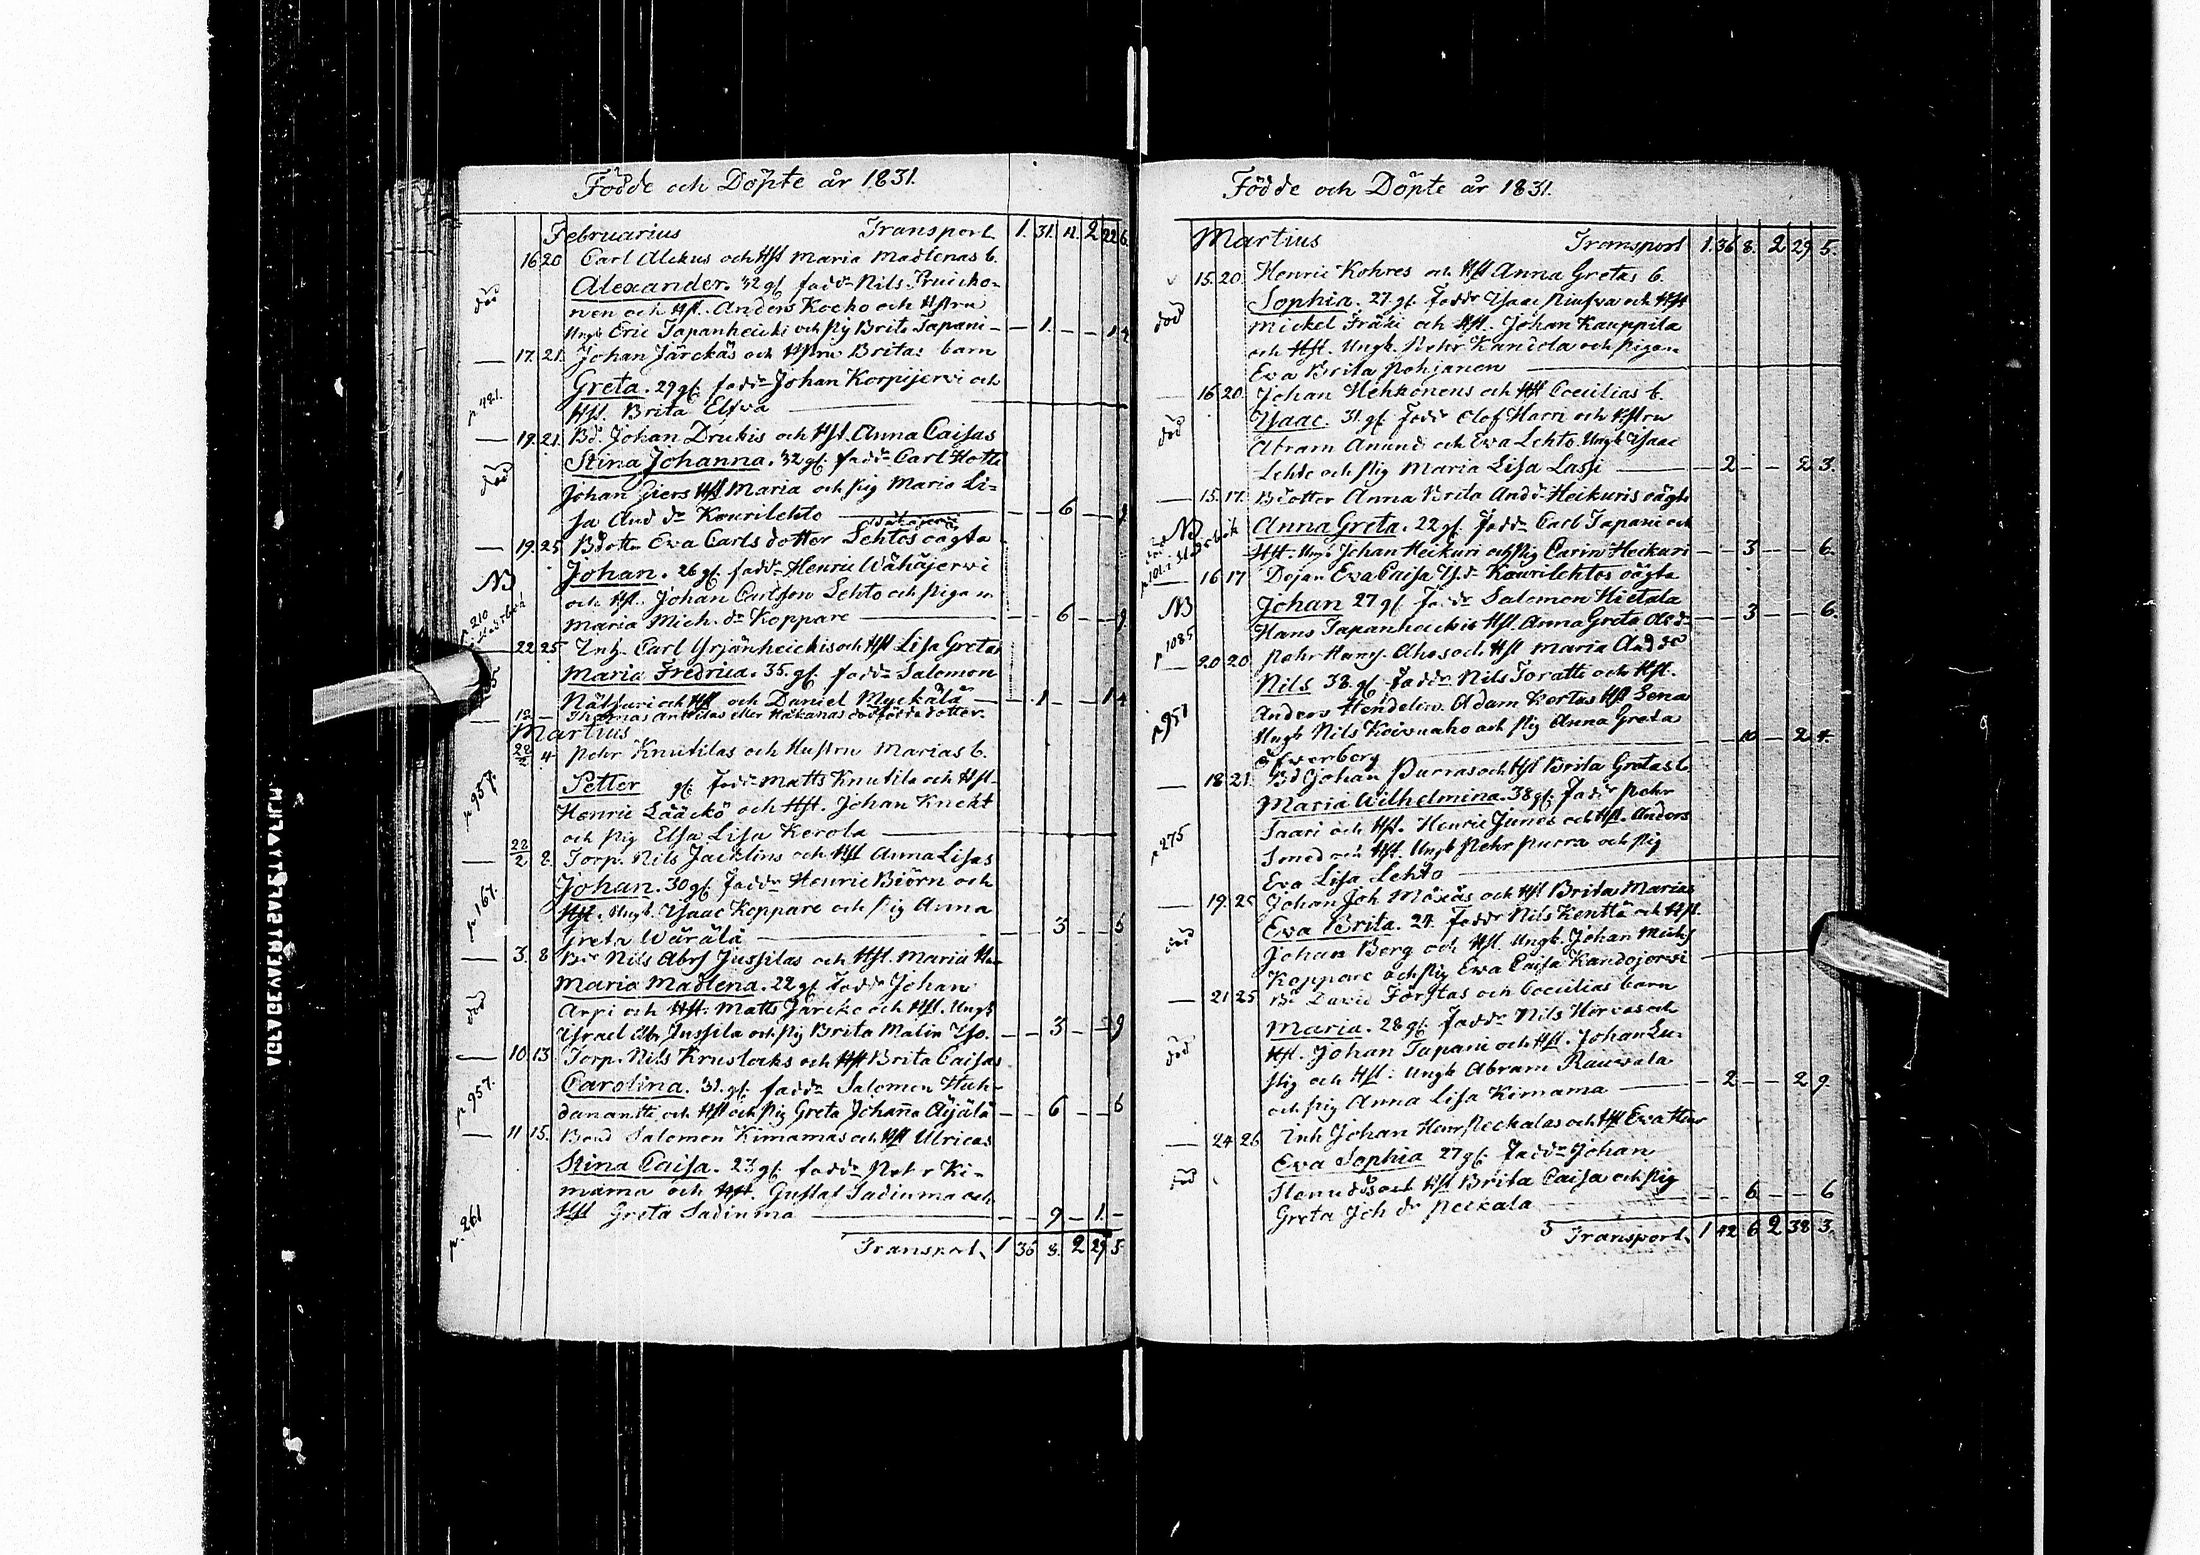 Födde och Döpte år 1831.
Februarius Transport 1. 31. 11. 2 22 6.
16 20 Carl Alckus och Hst Maria Madlenas b.
död Alexander. 32 gl. fadd. Nils
nen och Hst. Anders Kocko och Hstru
Ungk Eric Tapanheicki och Pig Brita Tapani – – 1. – – 1 4
17. 21. Johan Järckäs och Hstru Britas barn
p 421. Greta. 29 gl. fadd. Johan Korpijerwi och
Hst. Brita Elfva
19. 21. Bd. Johan Drukis och Hst. Anna Caisas
död Stina Johanna. 32 gl. fadd. Carl Hotti
Johan Giers Hst Maria och Pig Maria Li-
sa And dr Kourilehto – – 6 – – 9
19. 25 Bdottr Ewa Carls dotter Lehtos oägta
NB Johan. 26 gl. fadd. Henric Wähäjerwi
p. 210 och Hst. Johan Carlsson Lehto och Pigan
Maria Mich. dr Koppare – – 6 – – 9
22 25 Inh. Carl Yrjänheickis och Hst Lisa Gretas
Maria Fredrica. 35. gl. fadd. Salomon
Nätsuri och Hst och Daniel Myckälä – 1 – – 1 4
12 – Thomas Anttilas eller Häkanas dödfödde dotter.
Martius
22/2 4 Pehr Knutilas och Hustru Marias b.
p 957. Petter gl. fadd. Matts Knutila och Hst.
Henric Lääckö och Hst. Johan Knekt
och Pig Elsa Lisa Kerola
22/2 8. Torp. Nils Jacklins och Hst Anna Lisas
p 167. Johan. 30 gl. fadd. Henric Biörn och
Hst. Ungk. Isaac Koppare och Pig Anna
Greta Wärälä – – 3 – – 5
3. 8 Bd. Nils Abrs Jussilas och Hst. Maria
död Maria Madlena. 22 gl. fadd. Johan
Arpi och Hst. Matts Järcke och Hst. Ungk
Israel Abr Jussila och Pig Brita Malin – – 3 – – 9
10 13. Torp. Nils Kruslocks och Hst Brita Caisas
p 957. Carolina. 31. gl. fadd. Salomon Huh-
danantti och Hst och Pig Greta Johanna Äijälä – – 6 – – 6
11 15. Bond Salomon Kimamas och Hst Ulricas
Stina Caisa. 23 gl. fadd. Pehr Ki-
mama och Hst. Gustaf Sadinma och
p. 261 Hst Greta Sadinma – – 9 – 1. –
Transport. 1 36 8. 2 29 5.
Födde och Döpte år 1831.
Martius Transport 1. 36 8. 2 29. 5.
15. 20. Henric Kohres och Hst Anna Gretas b.
död Sophia. 27. gl. fadd. Isaac Niufva och Hst
Mickel Fräki och Hst. Johan Kauppila
och Hst. Ungk. Pehr Kandola och Pigan
Eva Brita Pohjanen
16 20. Johan Hehkonens och Hst Coecilias b.
död Isaac. 31 gl. fadd Olof Harri och Hstru
Abram Anund och Ewa Lehto. Ungk Isaac
Lehto och Pig Maria Lisa Lassi – 2 – – 2 3.
15. 17. Bdotter Anna Brita And. Heikuris oägta
NB Anna Greta. 22 gl. fadd. Carl Tapani och
Hst. Ungk Johan Heikuri och Pig Carin Heikuri – – 3 – – 6.
16 17 Dejan Ewa Caisa Kourilehtos oägta
NB Johan 27 gl. fadd. Salomon Hietala
p 1085 Hans Tapanheickis Hst. Anna Greta – – 3 – – 6.
20 20 Pehr Ahos och Hst Maria And dr
p 951 Nils 38 gl. fadd. Nils Toratti och Hst.
Anders Hendelin. Adam Kertas Hst Lena
Ungk Nils Koivuaho och Pig Anna Greta
Öfwerberg – – 10 – – 2 4.
18 21. Bd Johan Purras och Hst Brita Gretas b.
Maria Wilhelmina. 38 gl. fadd Pehr
p 275 Saari och Hst. Henric Junes och Hst. Anders
Smed och Hst. Ungk Pehr Purra och Pig
Eva Lisa Lehto
19. 25 Johan Joh Mäxäs och Hst Brita Marias
död Eva Brita. 24. fadd Nils Kenttä och Hst.
Johan Berg och Hst. Ungk. Johan Michs
Koppare och Pig Ewa Caisa Kandojerwi
21 25 Bd David Förstas och Coecilias barn
död Maria. 28 gl. fadd. Nils Horvas och
Hst. Johan Tapani och Hst. Johan Lu-
stig och Hst. Ungk Abram Rauwala
och Pig Anna Lisa Kimama – 2 – – 2 9.
24 26 Inh Johan Henr Peckalas och Hst Ewa Henr
död Ewa Sophia 27 gl. fadd. Johan
och Hst Brita Caisa och Pig
Greta Joh dr Peckala – – 6 – – 6
5 Transport. 1 42 6 2 38 3.